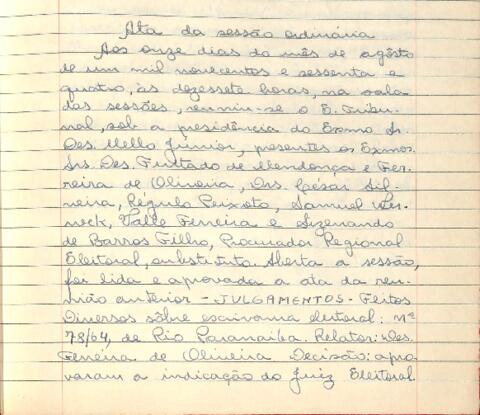 Ata da sessão ordinária
Aos onze dias do mês de agôsto
de um mil novecentos e sessenta e
quatro, às dezessete horas, na sala
das sessões, reuniu-se o E. Tribu-
nal, sob a presidência do Exmo. Sr.
Des. Mello Júnior, presentes os Exmos.
Srs. Des. Furtado de Mendonça e Fer-
reira de Oliveira, Drs. César Sil-
veira, Régulo Peixoto, Samuel Wer-
neck, Valle Ferreira e Sizenando
de Barros Filho, Procurador Regional
Eleitoral, substituto. Aberta a sessão,
foi lida e aprovada a ata da reu-
nião anterior - JULGAMENTOS - Feitos
Diversos sôbre escrivania eleitoral: nº
78/64, de Rio Paranaíba. Relator: Des.
Ferreira de Oliveira Decisão: apro
varam a indicação do Juiz Eleitoral